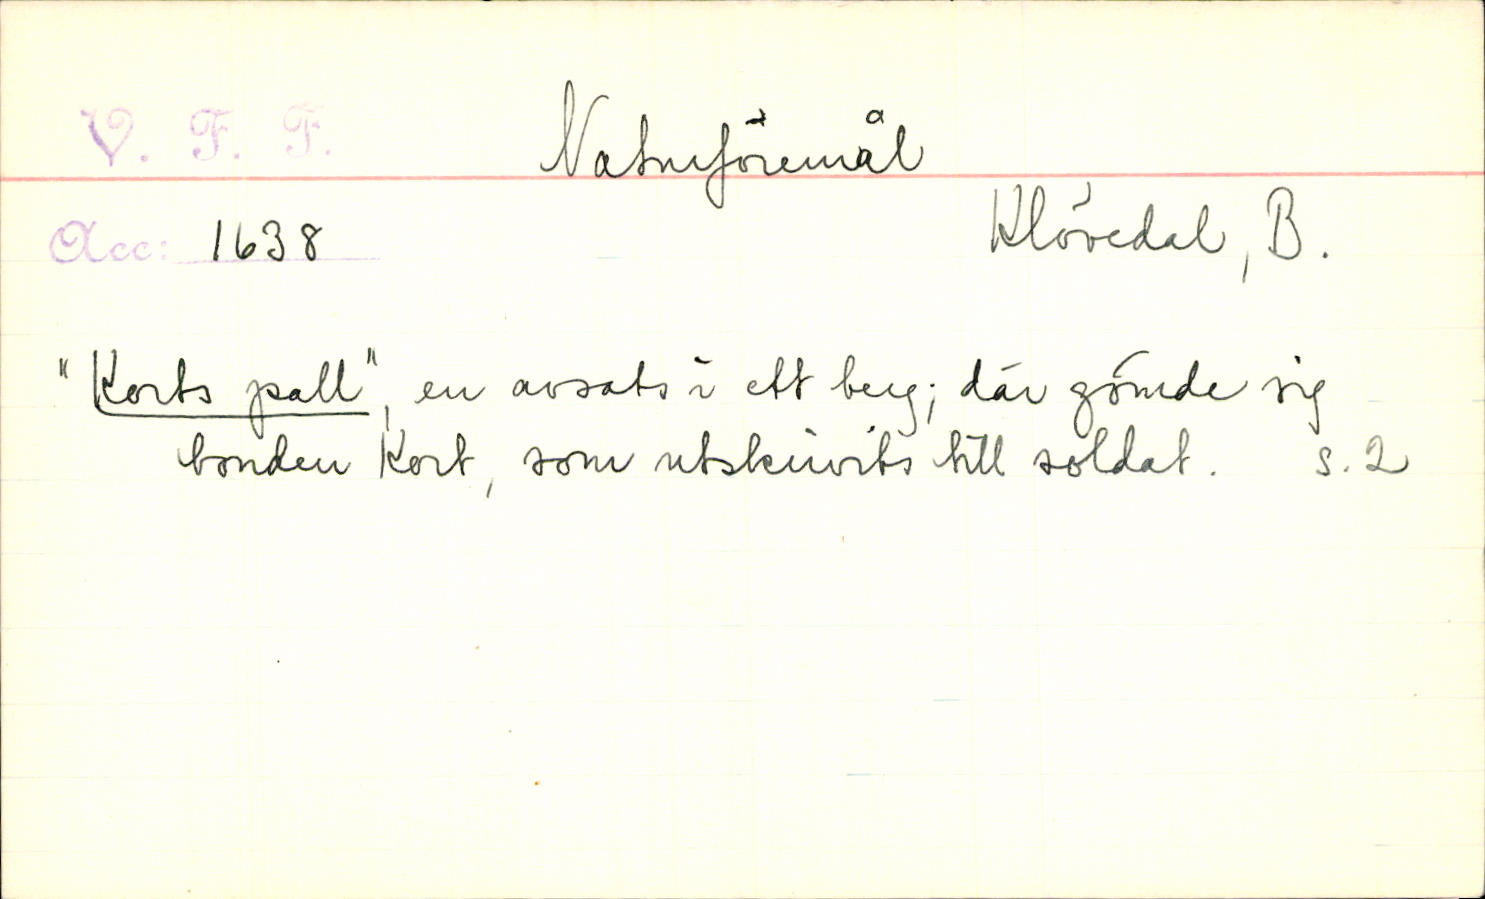 V. F. F.
Naturföremål
Acc: 1638
Klövedal, B.
"Korts pall", en avsats i ett berg; där gömde sig
bonden Kort, som utskrivits till soldat. s. 2